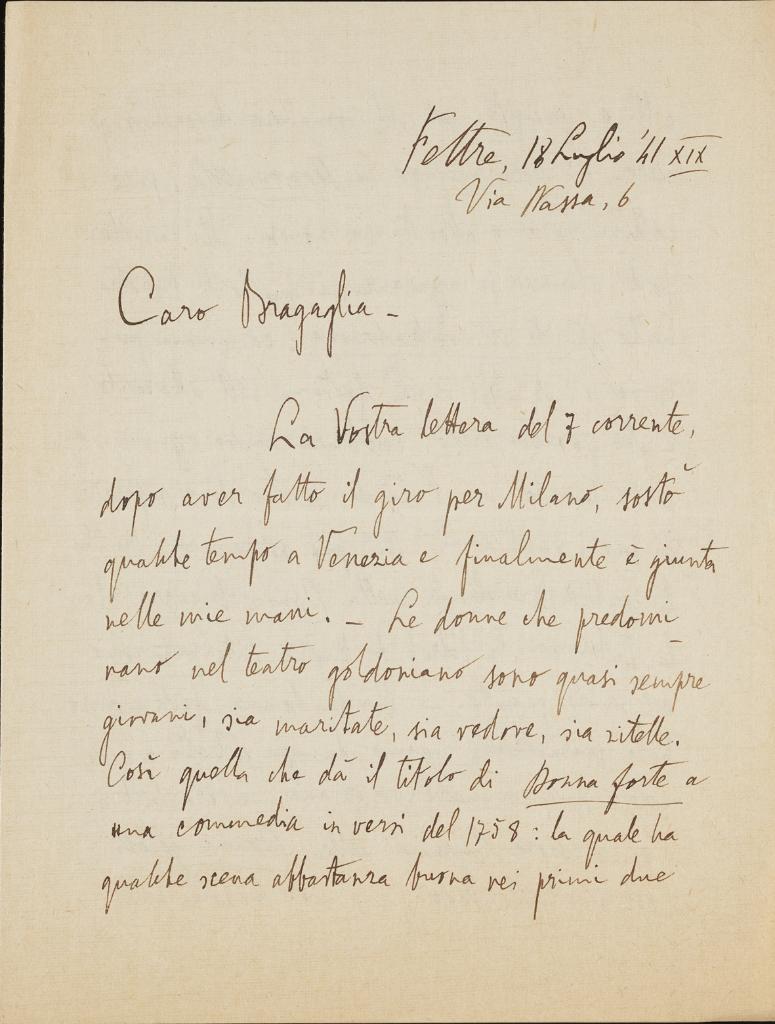 Feltre, 18 Luglio '41 XIX
Via Nassa, 6
Caro Bragaglia -
La Vostra lettera del 7 corrente,
dopo aver fatto il giro per Milano, sostò
qualche tempo a Venezia e finalmente è giunta
nelle mie mani. - Le donne che predomi-
nano nel teatro goldoniano sono quasi sempre
giovani, sia maritate, sia vedove, sia zitelle.
Così quella che dà il titolo di Donna forte a
una commedia in versi del 1758: la quale ha
qualche scena abbastanza buona nei primi due